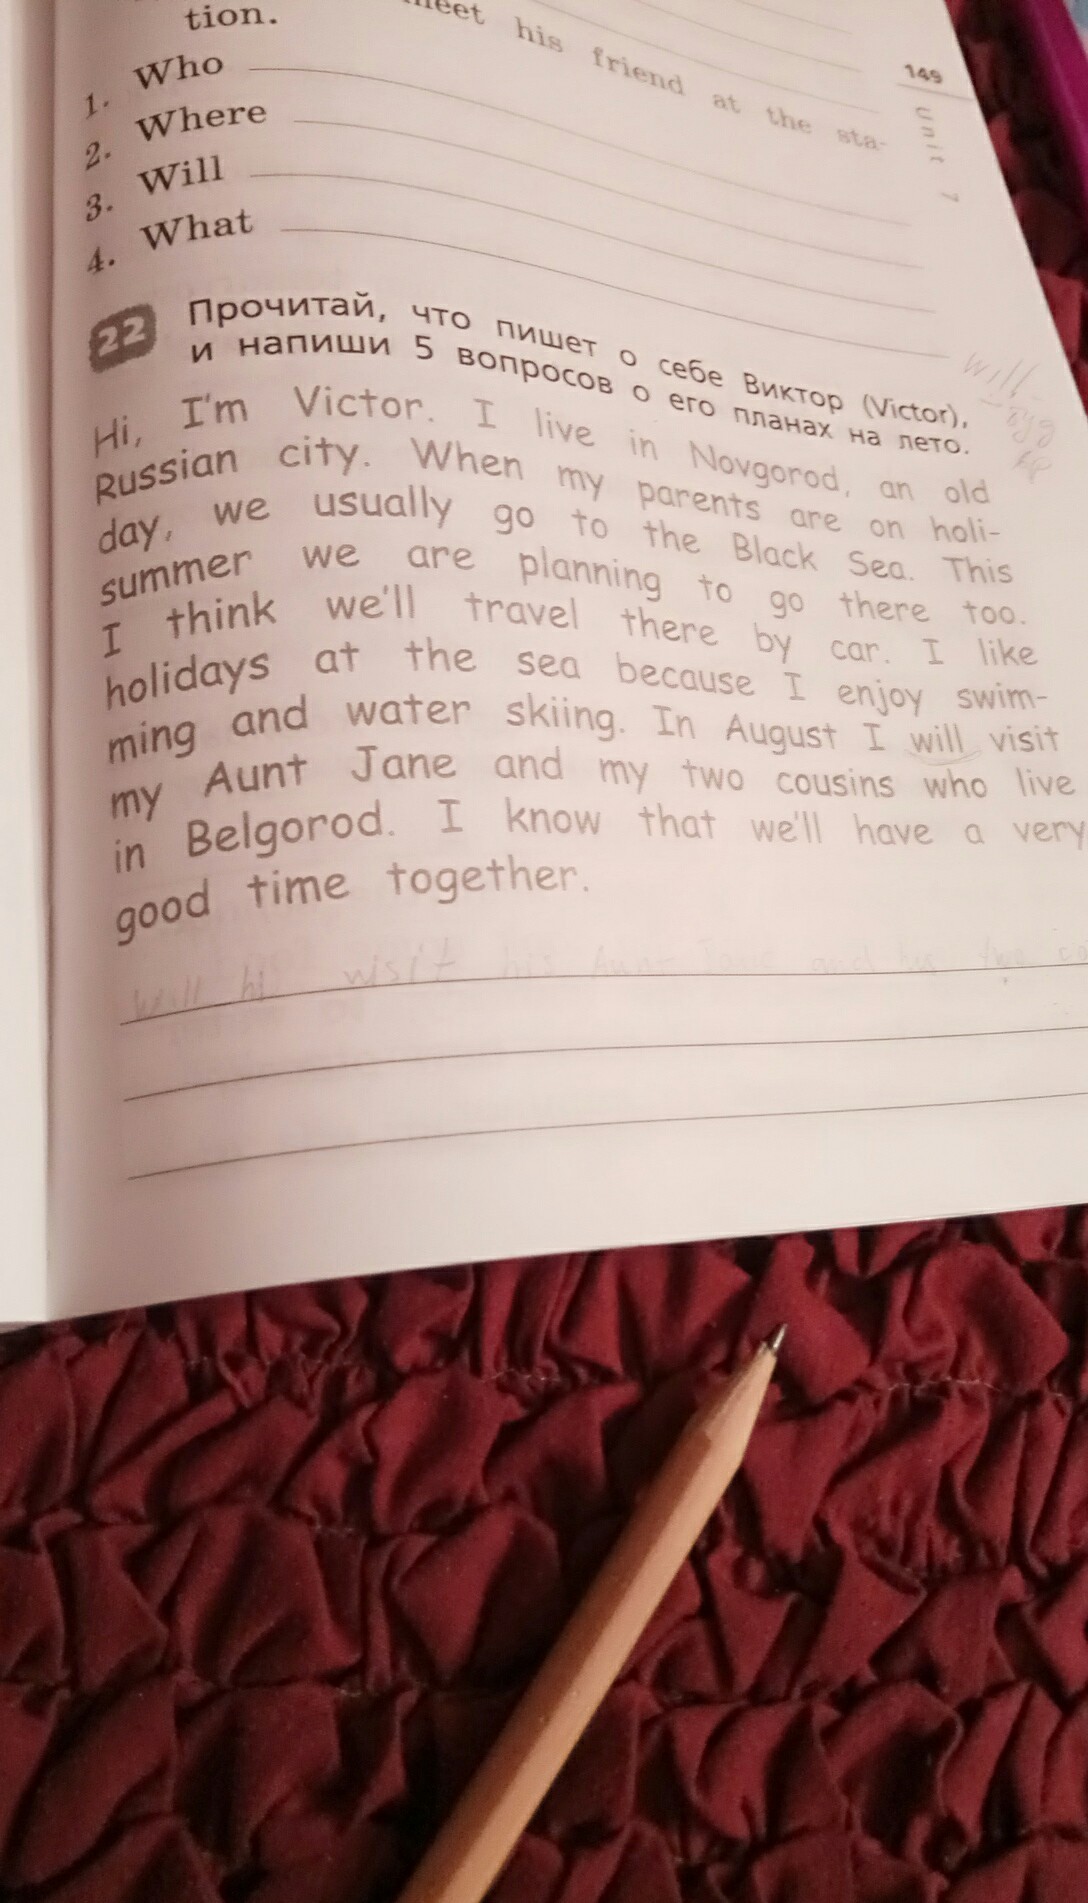 meet his friend at the sta-
tion.
149
Unit 7
1. Who
2. Where
3. Will
4. What
22 Прочитай, что пишет о себе Виктор (Victor),
и напиши 5 вопросов о его планах на лето.
will -
Hi, I'm Victor. I live in Novgorod, an old
Russian city. When my parents are on holi-
day, we usually go to the Black Sea. This
summer we are planning to go there too.
I think we'll travel there by car. I like
holidays at the sea because I enjoy swim-
ming and water skiing. In August I will visit
my Aunt Jane and my two cousins who live
in Belgorod. I know that we'll have a very
good time together.
Will hi visit his Aunt Jane and his two co